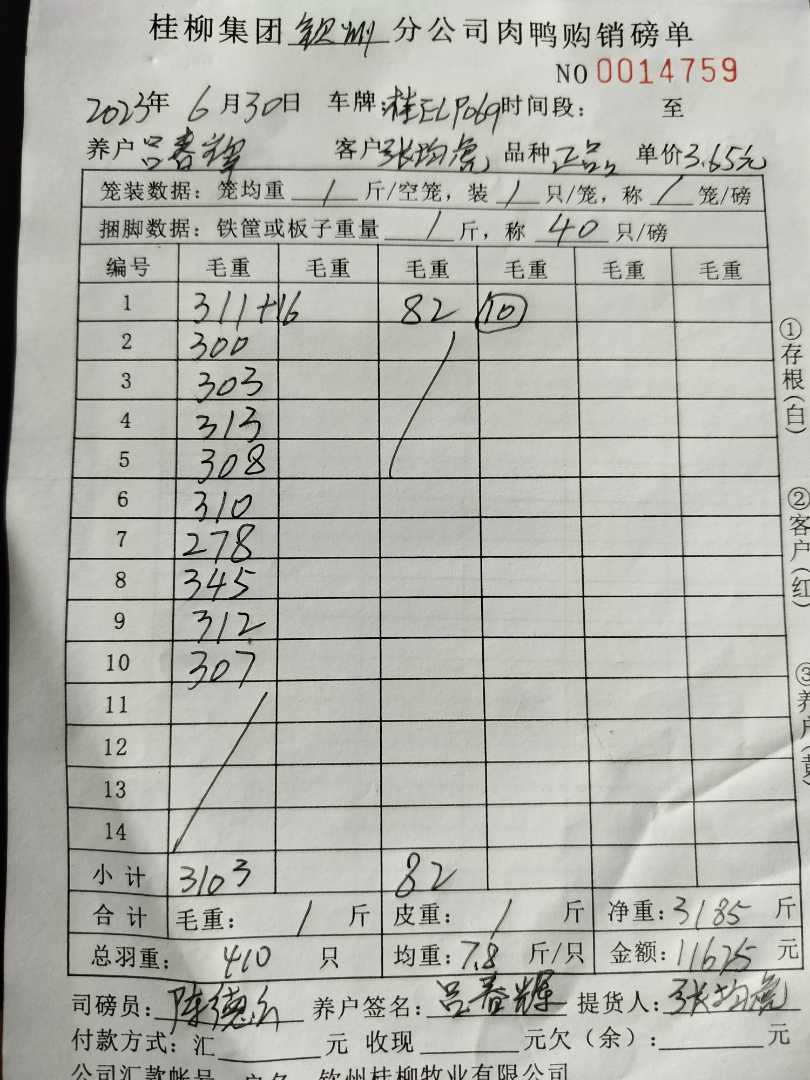 桂柳集团钦州分公司肉鸭购销磅单
NO 0014759
2023年 6月30日 车牌:桂ELP069时间段: 至
养户吕春辉 客户张均虎 品种正品 单价3.65元
笼装数据: 笼均重 / 斤/空笼, 装 / 只/笼, 称 / 笼/磅
捆脚数据: 铁筐或板子重量 / 斤, 称 40 只/磅
编号 毛重 毛重 毛重 毛重 毛重 毛重
1 311+16 82 10
2 300
3 303
4 313
5 308
6 310
7 278
8 345
9 312
10 307
11
12
13
14
小计 3103 82
合计 毛重: / 斤 皮重: / 斤 净重:3185 斤
总羽重: 410 只 均重:7.8 斤/只 金额:11625 元
司磅员: 陈德 养户签名: 吕春辉 提货人:张均虎
付款方式: 汇 元 收现 元欠(余): 元
公司汇款帐号 户名 钦州桂柳牧业有限公司
①存根(白)
②客户(红)
③养户(黄)